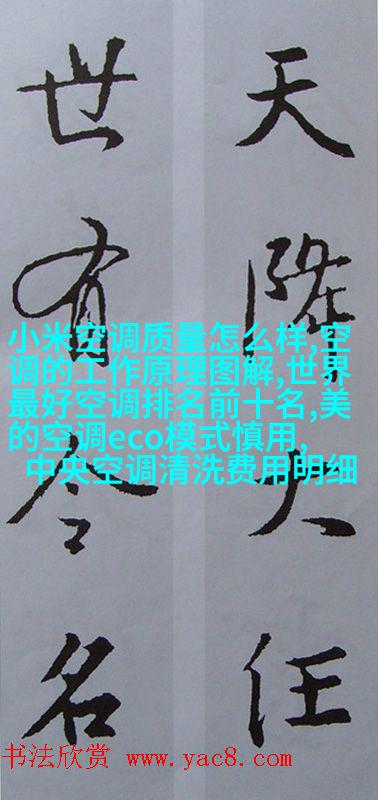 天降大任
世有令名
小米空调质量怎么样,空
调的工作原理图解,世界
最好空调排名前十名,美
的空调eco模式慎用,
中央空调清洗费用明细
书法欣赏 www.yac8.com